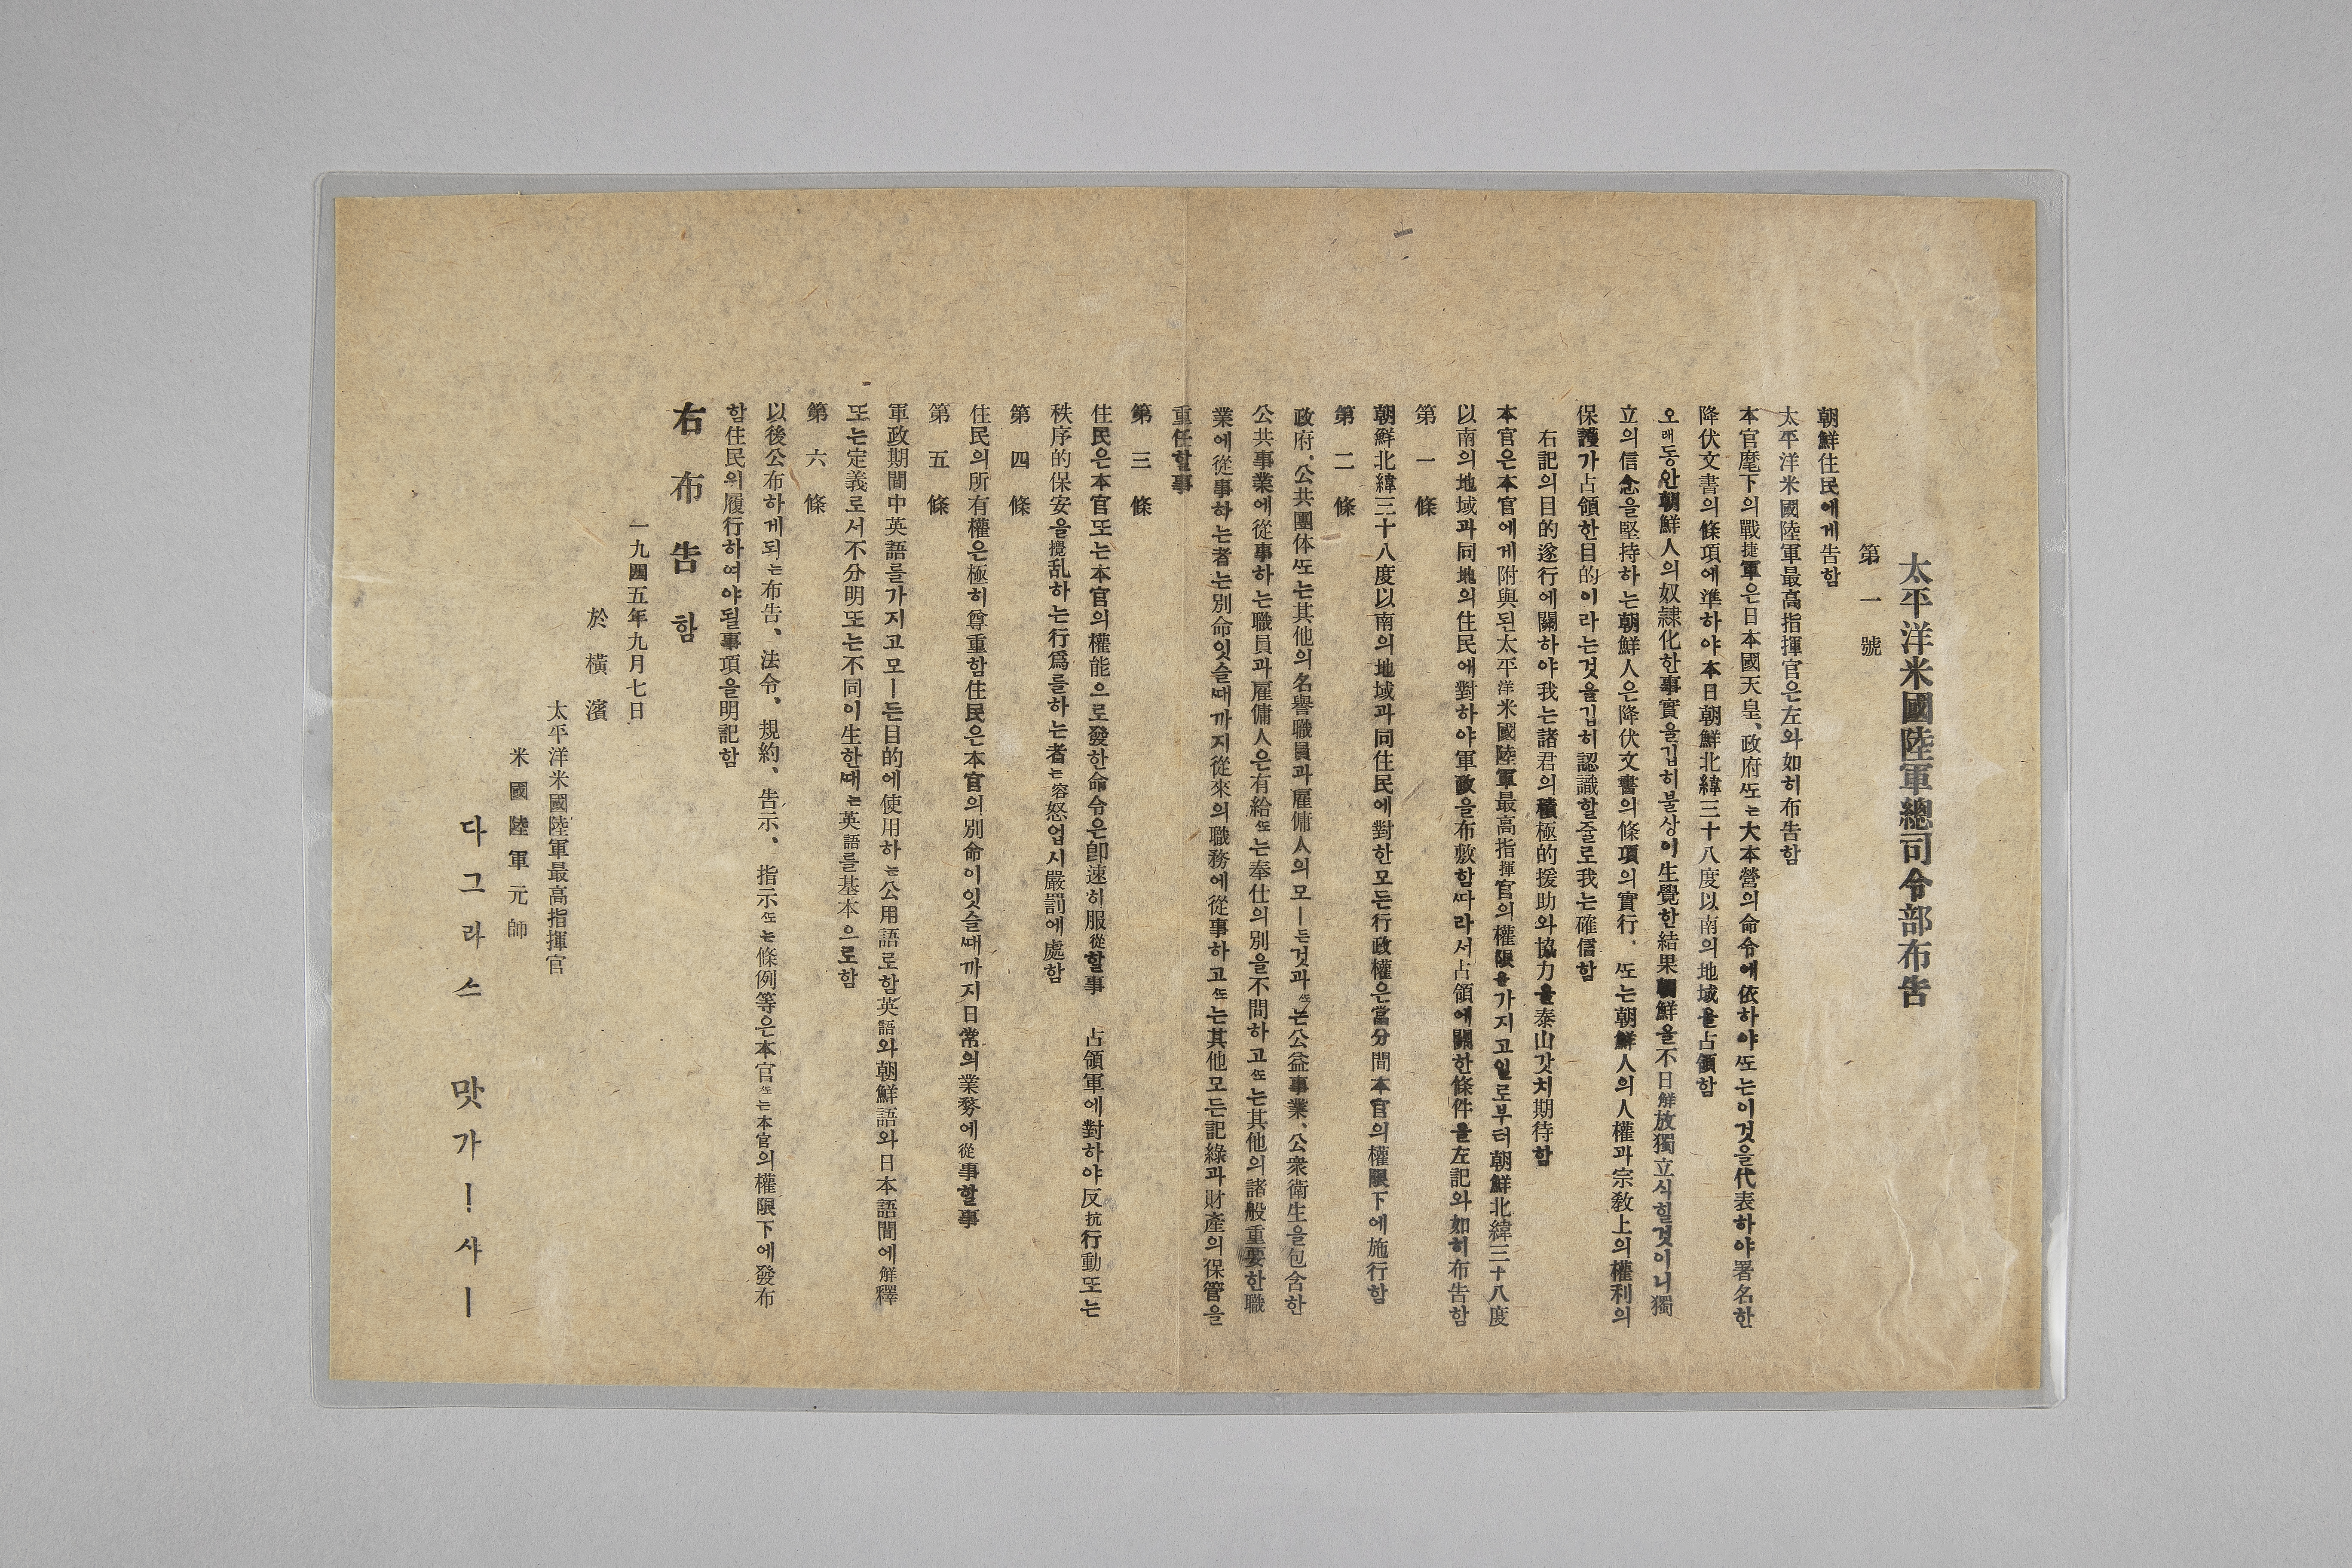 太平洋米國陸軍總司令部布告
第一號
朝鮮住民에게告함
太平洋米國陸軍最高指揮官은左와如히布告함
本官麾下의戰捷軍은日本國天皇、政府ᄯᅩ는大本營의命令에依하야ᄯᅩ는이것을代表하야署名한
降伏文書의條項에準하야本日朝鮮北緯三十八度以南의地域을占領함
오래동안朝鮮人의奴隷化한事實을깁히불상이生覺한結果朝鮮을不日解放獨立시힐것이니獨
立의信念을堅持하는朝鮮人은降伏文書의條項의實行、ᄯᅩ는朝鮮人의人權과宗敎上의權利의
保護가占領한目的이라는것을깁히認識할줄로我는確信함
右記의目的遂行에關하야我는諸君의積極的援助와協力을泰山갓치期待함
本官은本官에게附與된太平洋米國陸軍最高指揮官의權限을가지고일로부터朝鮮北緯三十八度
以南의地域과同地의住民에對하야軍政을布敷함ᄯᅡ라서占領에關한條件을左記와如히布告함
第一條
朝鮮北緯三十八度以南의地域과同住民에對한모든行政權은當分間本官의權限下에施行함
第二條
政府、公共團体ᄯᅩ는其他의名譽職員과雇傭人의모ー든것과ᄯᅩ는公益事業、公衆衛生을包含한
公共事業에從事하는職員과雇傭人은有給ᄯᅩ는奉仕의別을不問하고ᄯᅩ는其他의諸般重要한職
業에從事하는者는別命잇슬ᄯᅢ까지從來의職務에從事하고ᄯᅩ는其他모든記錄과財産의保管을
重任할事
第三條
住民은本官또는本官의權能으로發한命令은卽速히服從할事　占領軍에對하야反抗行動또는
秩序的保安을攪乱하는行爲를하는者는容怒업시嚴罰에處함
第四條
住民의所有權은極히尊重함住民은本官의別命이잇슬ᄯᅢ까지日常의業務에從事할事
第五條
軍政期間中英語를가지고모ー든目的에使用하는公用語로함英語와朝鮮語와日本語間에解釋
또는定義로서不分明또는不同이生한ᄯᅢ는英語를基本으로함
第六條
以後公布하게되는布告、法令、規約、告示、指示ᄯᅩ는條例等은本官ᄯᅩ는本官의權限下에發布
함住民의履行하여야될事項을明記함
右布告함
一九四五年九月七日
於橫濱
太平洋米國陸軍最高指揮官
米國陸軍元帥
다그라스　맛가ー사ー